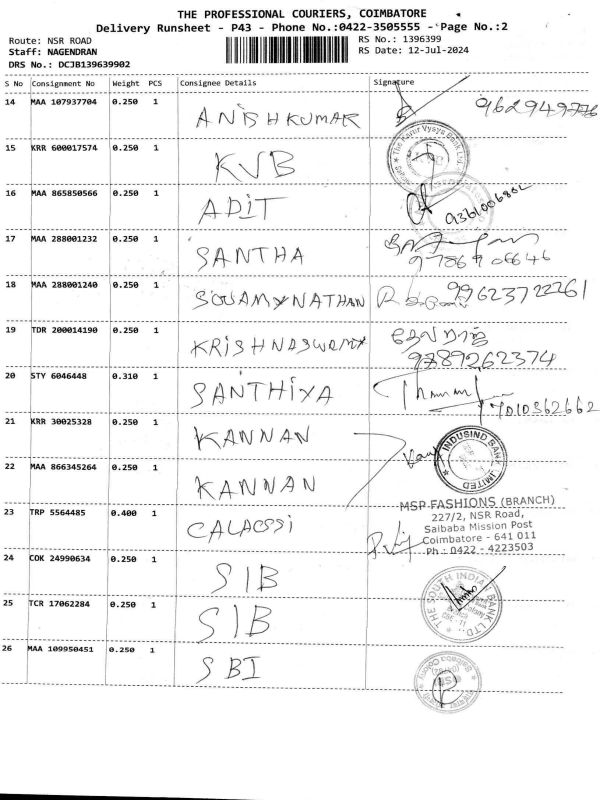 THE PROFESSIONAL COURIERS, COIMBATORE
Delivery Runsheet - P43 - Phone No.:0422-3505555 - Page No.:2
Route: NSR ROAD
RS No.: 1396399
Staff: NAGENDRAN
RS Date: 12-Jul-2024
DRS No.: DCJB139639902
S No Consignment No Weight PCS Consignee Details Signature
14 MAA 107937704 0.250 1 ANISHKUMAR
15 KRR 600017574 0.250 1 KVB The Karur Vysya Bank Ltd.
16 MAA 865850566 0.250 1 ADIT
17 MAA 288001232 0.250 1 SANTHA
18 MAA 288001240 0.250 1 SOUAMYNATHAN 99623722261
19 TDR 200014190 0.250 1 KRISHNASWAMY தேவராஜ்
9789262374
20 STY 6046448 0.310 1 SANTHIYA
7010362662
21 KRR 30025328 0.250 1 KANNAN INDUSIND BANK LIMITED
22 MAA 866345264 0.250 1 KANNAN
23 TRP 5564485 0.400 1 CALAOSSI
MSP FASHIONS (BRANCH)
227/2, NSR Road,
Saibaba Mission Post
Coimbatore - 641 011
Ph : 0422 - 4223503
24 COK 24990634 0.250 1 SIB THE SOUTH INDIAN BANK LTD
25 TCR 17062284 0.250 1 SIB
26 MAA 109950451 0.250 1 SBI